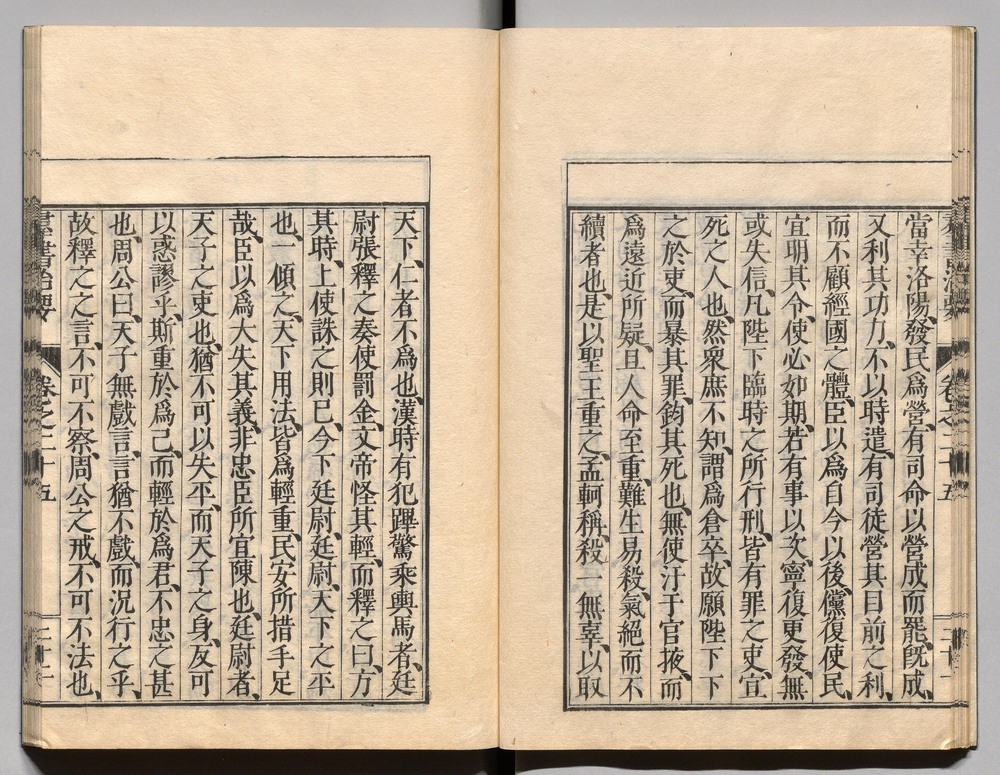 當幸洛陽、發民爲營、有司命以營成而罷、既成、
又利其功力、不以時遣、有司徒營其目前之利、
而不顧經國之體、臣以爲自今以後、儻復使民、
宜明其令、使必如期、若有事以次、寧復更發、無
或失信、凡陛下臨時之所行刑、皆有罪之吏、宜
死之人也、然衆庶不知、謂爲倉卒、故願陛下下
之於吏、而暴其罪、鈞其死也、無使汙于官掖、而
爲遠近所疑、且人命至重、難生易殺、氣絕而不
續者也、是以聖王重之、孟軻稱、殺一無辜、以取
天下、仁者不爲也、漢時有犯蹕驚乘輿馬者、廷
尉張釋之奏使罰金、文帝怪其輕、而釋之曰、方
其時、上使誅之則已、今下廷尉、廷尉、天下之平
也、一傾之、天下用法、皆爲輕重、民安所措手足
哉、臣以爲大失其義、非忠臣所宜陳也、廷尉者、
天子之吏也、猶不可以失平、而天子之身、反可
以惑謬乎、斯重於爲己、而輕於爲君、不忠之甚
也、周公曰、天子無戲言、言猶不戲、而況行之乎、
故釋之之言、不可不察、周公之戒、不可不法也、
羣書治要 卷之二十五